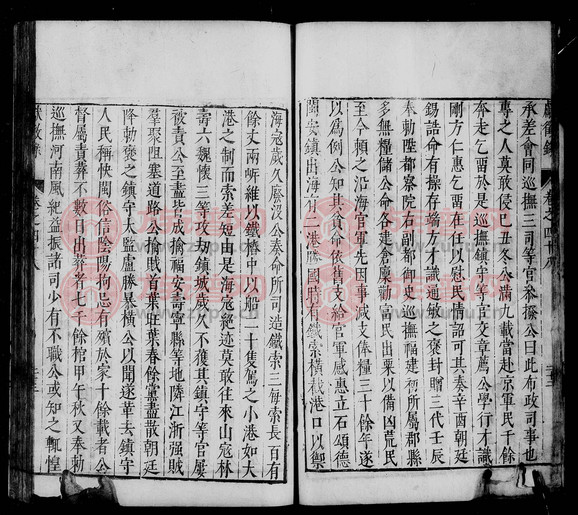 獻徵錄
卷之四十八
承差會同巡撫三司等官參撥公曰此布政司事也
專之人莫敢侵己丑冬公滿九載當赴京軍民千餘
奔走乞留於是巡撫鎮守等官文章薦公學行才識
剛方仁惠乞留在任以慰民情詔可其奏辛酉朝廷
錫誥命有操存端方才識通敏之褒封贈三代壬辰
奉勅陞都察院右副都御史巡撫福建所屬郡縣
多無糧儲公命各建倉廩勸富民出粟以備凶荒民
至今頼之沿海官軍先因事減支俸糧三十餘年遂
以為例公知其貧命依舊支給官軍感惠立石頌德
閩安鎮出海有二港勝國時有鐵索橫截港口以禦
海寇歲久廢沒公奏命所司造鐵索三每索長百有
餘丈兩听維以鐵擠中以船二十隻駕之小港如大
港之制而索差短由是海寇絶迹莫敢往來山寇林
壽六魏懷三等攻刼鎮城歲久不獲其鎮守等官屢
被責公至盡皆成擒福安壽寧縣等地隣江浙强賊
羣聚阻塞道路公擒賊首葉旺葉春餘黨盡散朝廷
降勅褒之鎮守太監盧勝暴橫公以聞遂革去鎮守
人民稱快閩俗信陰陽拘忌有殯於家十餘載者公
督屬責葬不數日出葬者七千餘棺甲午秋又奉勅
巡撫河南風紀益振諸司少有不職公或知之輒惶
獻徵錄
卷之四十八